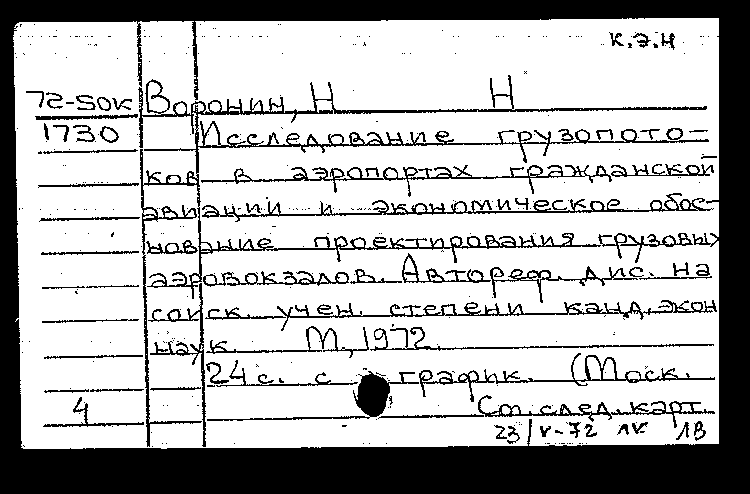 К.Э.Н
72-50к Воронин, Н Н
1730 Исследование грузопото-
ков в аэропортах гражданской
авиации и экономическое обос-
нование проектирования грузовых
аэровокзалов. Автореф. дис. на
соиск. учен. степени канд. экон
наук. М., 1972.
24 с. с график. (Моск.
4 См. след. карт.
23/V-72 ЛВ